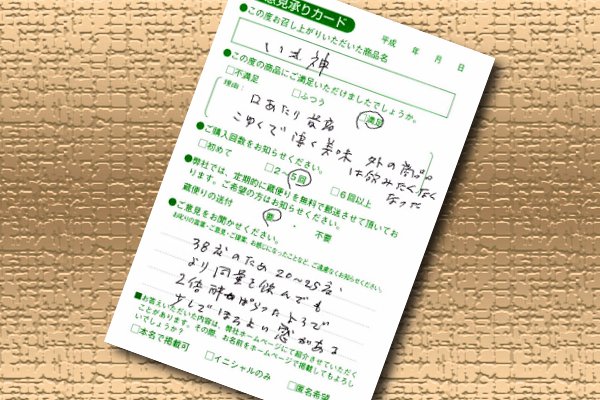 意見承りカード
平成 年 月 日
●この度お召し上がりいただいた商品名
いも神
●この度の商品にご満足いただけましたでしょうか。
□不満足 □ふつう □満足
理由：
口あたり最高
こゆくて凄く美味 外の商品
は飲みたくなく
なった
●ご購入回数をお知らせください。
□初めて □2～5回 □6回以上
●弊社では、定期的に蔵便りを無料で郵送させて頂いてお
ります。ご希望の方はお知らせください。
蔵便りの送付 要 ・ 不要
●ご意見をお聞かせください。
お叱りの言葉・ご意見・ご提案、お感じになったことなど、ご遠慮なくお知らせください。
38度のため20～25度
より同量を飲んでも
2倍酔っぱらったようで
少しでほろよい感がある
■お答えいただいた内容は、弊社ホームページにて紹介させていただく
ことがあります。その際、お名前をホームページで掲載してもよろし
いでしょうか？
□本名で掲載可 □イニシャルのみ □匿名希望